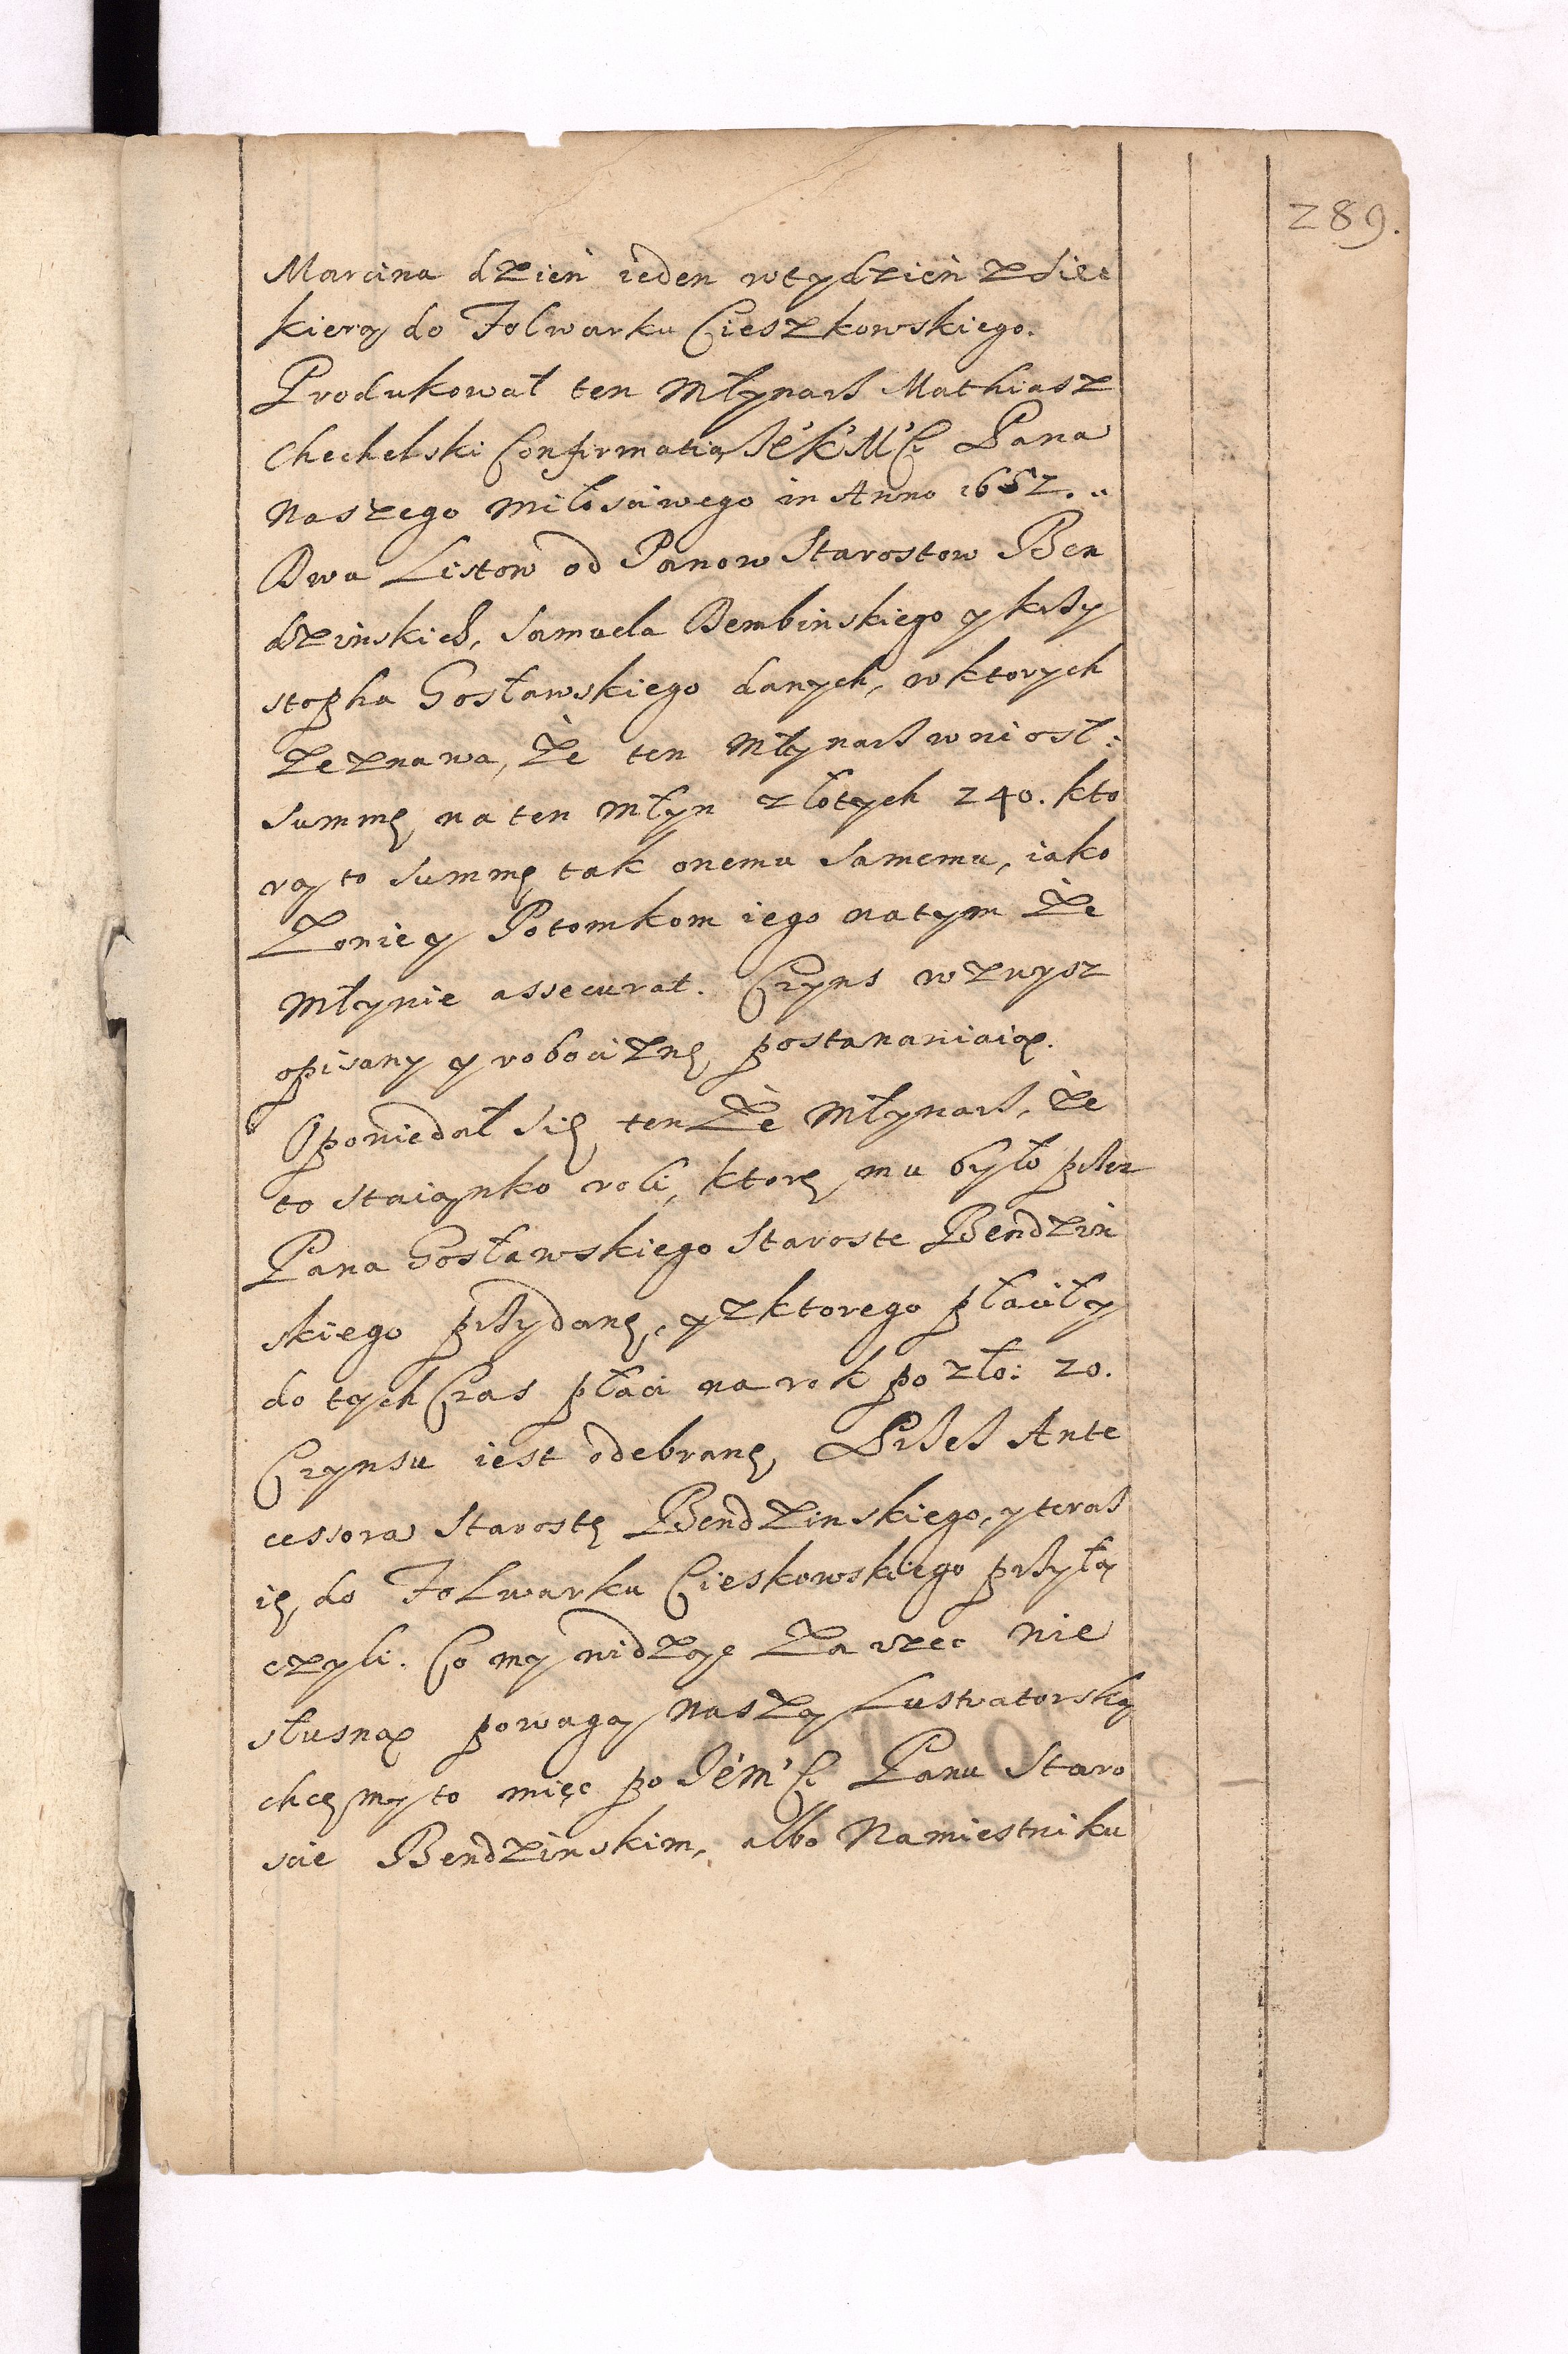 289.
Marcina dzień ieden wtydzień zSiec
kierą do Folwarku Cieszkowskiego.
Produkował ten Młynarz Mathiasz
Chechelski Confirmatią Je°K°M°Ci Pana
Naszego Miłosciwego in Anno 1652.
Dwa Listow od Panow Starostow Ben
dzinskich, Samuela Dembinskiego y krzy
stopha Gosławskiego danych, wktorych
zeznawa, że ten Młynarz wniosł
Summę na ten Młyn złotych 240. kto
rą to Summę tak onemu Samemu, iako
Zonie y Potomkom iego natym że
Młynie assecurat. Czyns wzwysz
opisany y robociznę postanawiaią.
Opowiedał Się tenże Młynarz, że
to staiąnko roli, ktorę mu było przez
Pana Gosławskiego Staroste Bendzin
skiego przydanę, yzktorego płacił y
do tych Czas płaci na rok po zło: 20.
Czynsu iest odebranę, Przez Ante
cessora Starostę Bendzinskiego, yteraz
ię do Folwarku Cieskowskiego przyłą
czyli. Co my widząc za rzec nie
słusną powagą Naszą Lustratorską
chcęmy to mięc po Je°m°Ci Panu Staro
scie Bendzinskim, albo Namiestniku